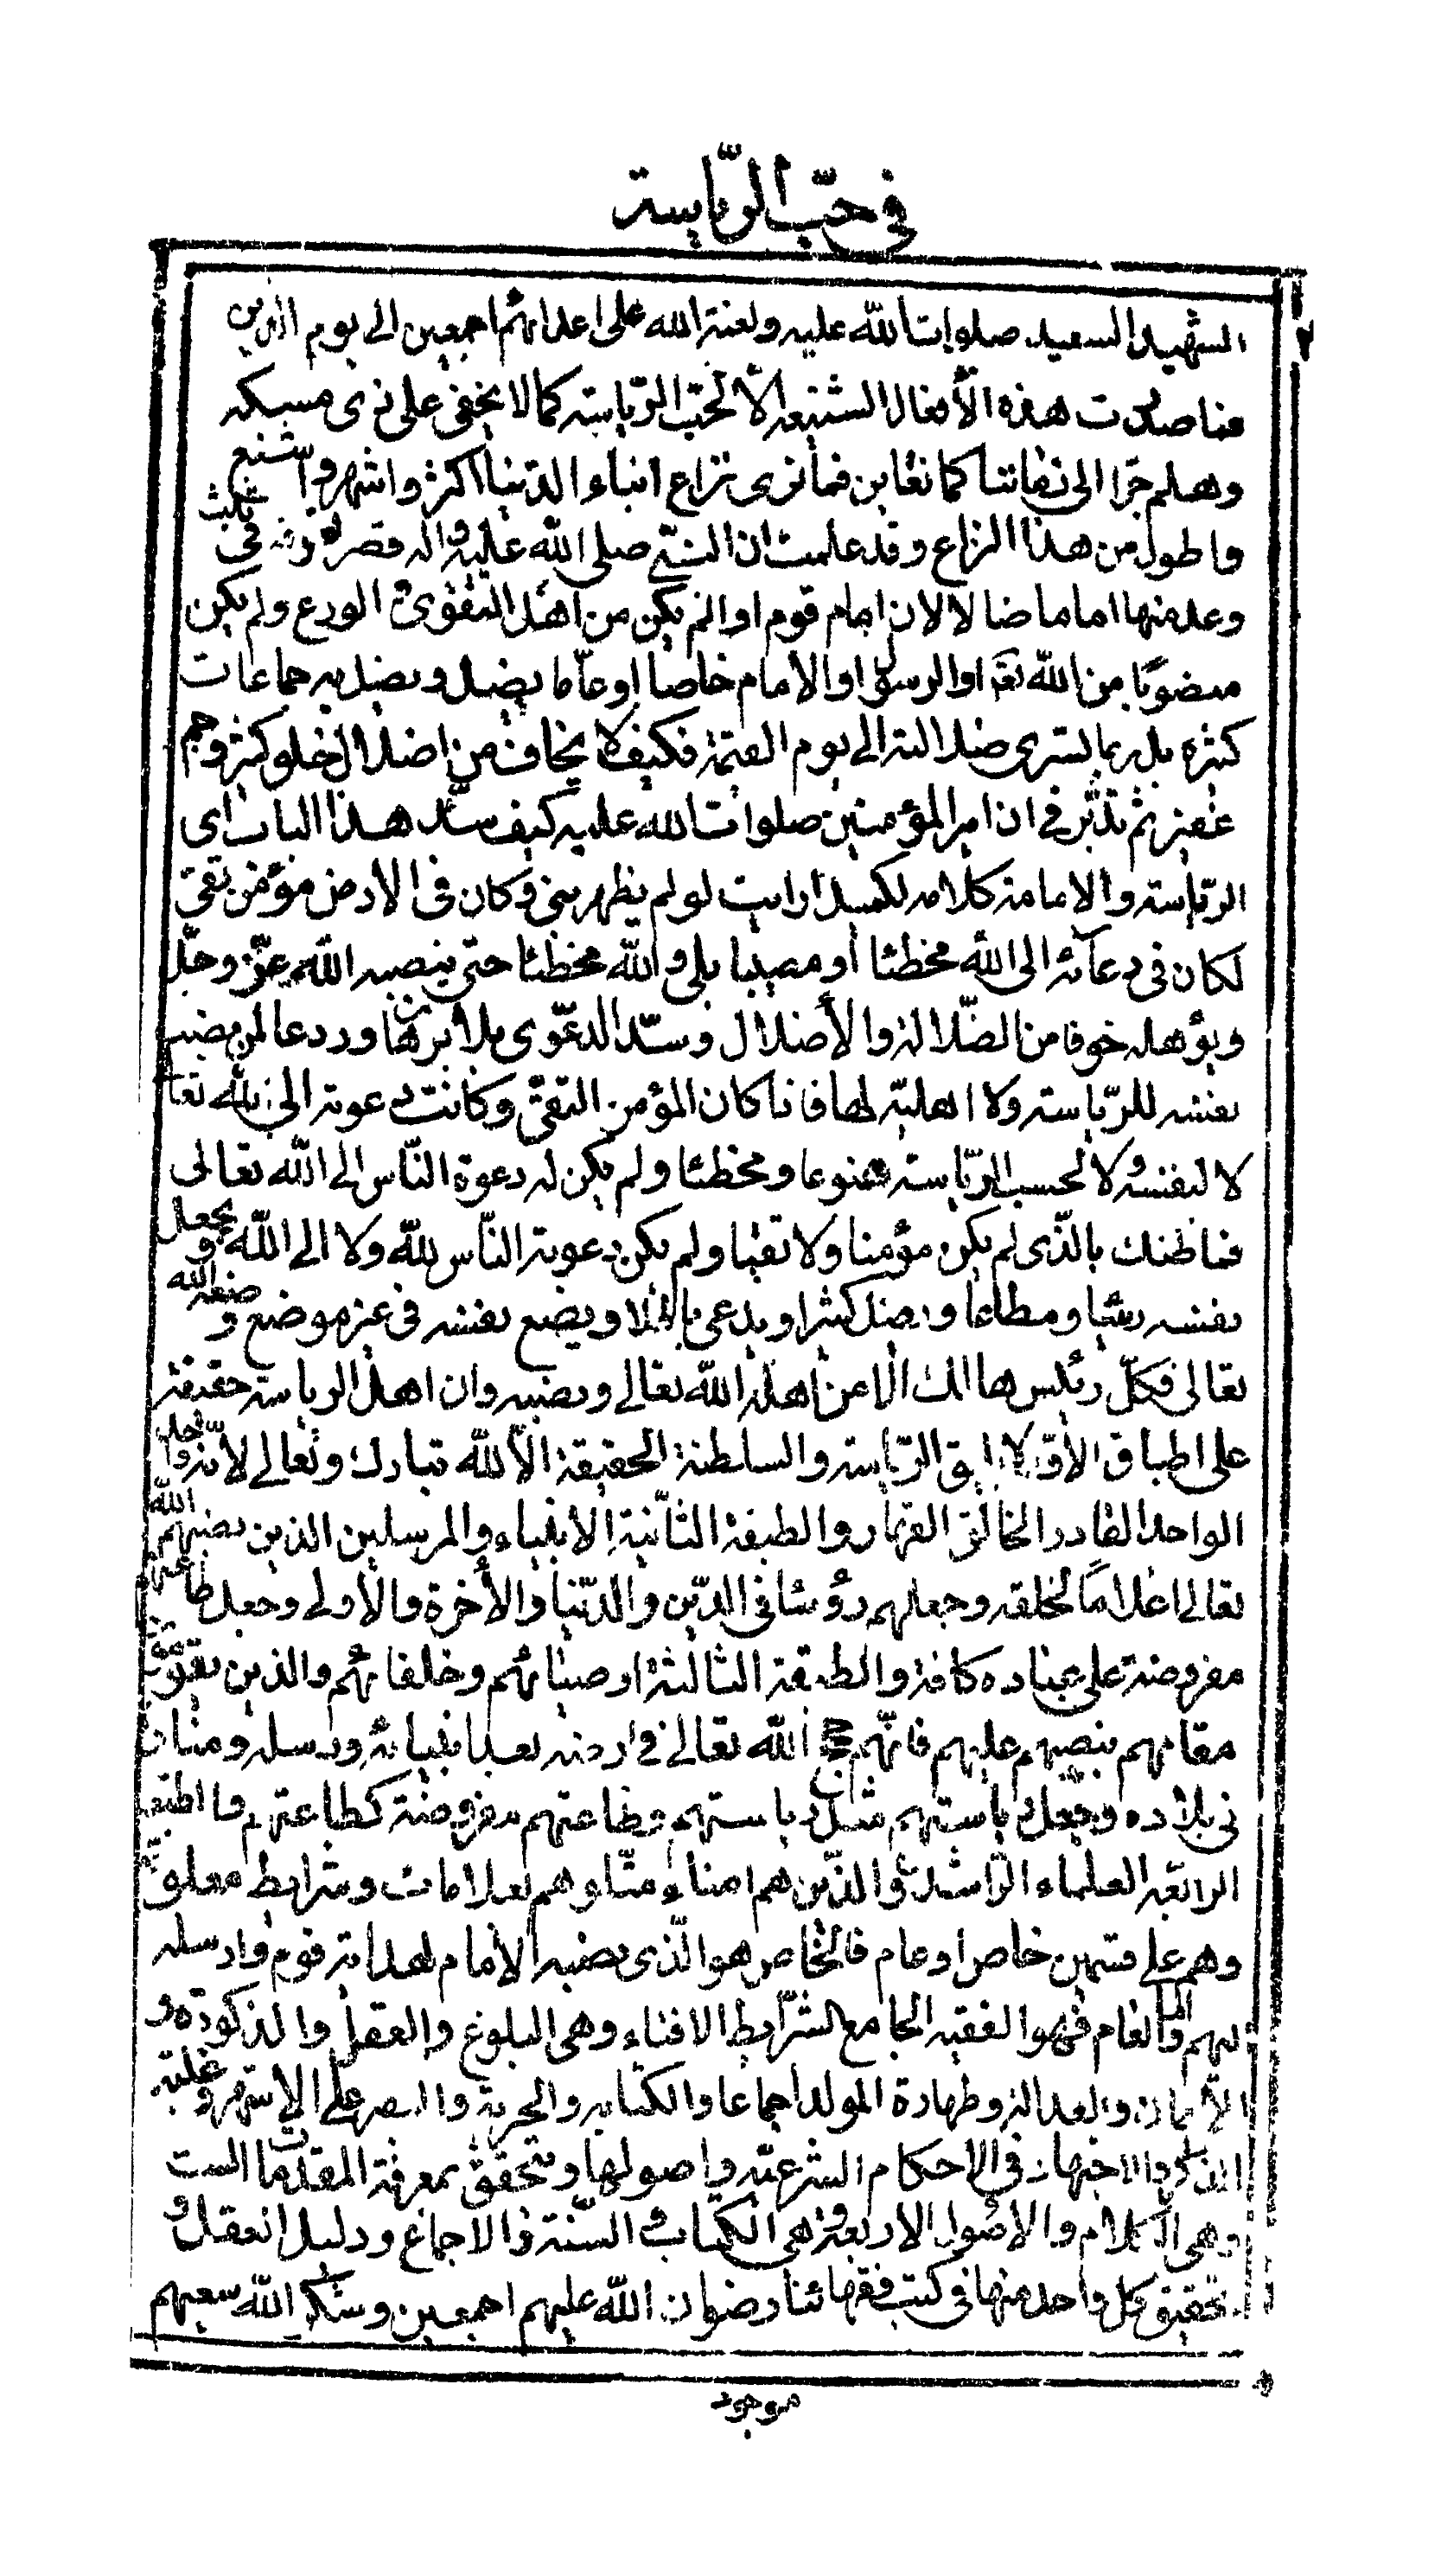 في حبّ الرّياسة
الشهيد السعيد صلوات الله عليه ولعنة الله على اعدائهم اجمعين الى يوم الدين
فما صدرت هذه الأفعال الشنيعه الّا لحبّ الرّياسته كما لا يخفى على ذى مسكه
وهلم جرّا الى زماننا كما نعاين فما نرى نزاع ابناء الدّنيا اكثر واشهر واشنع
واطول من هذا النزاع وقد علمت ان النبيّ صلى الله عليه واله قصر في ثلث
وعد منها اماما ضالا لان امام قوم اذا لم يكن من اهل التقوى و الورع ولم يكن
منصوبا من الله تع او الرسول او الامام خاصا او عاما يضل ويضل به جماعات
كثيره بل ربما يسرى ضلالته الى يوم القيمة فكيف لا يخاف من اضلال خلق كثير وجم
غفير ثم تدبّر في ان امير المؤمنين صلوات الله عليه كيف سدّ هذا الباب اى
الرّياسته والامامة كلامه لكميل ارايت لو لم يظهر نبي وكان فى الارض مؤمن تقى
لكان فى دعائه الى الله مخطئا أو مصيبا بلى والله مخطئا حتى ينصبه الله عزّ وجلّ
ويؤهله خوفا من الضّلالة والأضلال وسدّ الدعوى بلا برهان وردعا لمن نصب
نفسه للرّياسته ولا اهليّة لها فاذا كان المؤمن التقىّ وكانت دعوته الى الله تعا
لا لنفسه ولا لحسب الرّياسته ممنوعا ومخطئا ولم يكن له دعوة النّاس الى الله تعالى
فما ظنك بالّذى لم يكن مؤمنا ولا تقيا ولم يكن دعوته النّاس لله ولا الى الله ويجعل
نفسه رئيسا ومطاعا ويضل كثيرا ويدعى باطلا ويضع نفسه في غير موضع وضعه الله
تعالى فكلّ رئيس هالك الا من اهله الله تعالى ونصبه وان اهل الرياسة حقيقة
على اطباق الأوّل لا يليق الرّياسة والسلطنة الحقيقة الّا لله تبارك وتعالى لأنّه واجد
الواحد القادر الخالق القهار والطبقة الثّانية الانبياء والمرسلين الذين نصبهم الله
تعالى اعلاما لخلقه وجعلهم رؤسا في الدّين والدّنيا والأخرة والأولى وجعل طاعتهم
مفروضة على عباده كافة والطبقة الثالثة اوصيائهم وخلفائهم والذين يقومون
مقامهم بنصبهم عليهم فانّهم حجج الله تعالى في ارضه بعد انبيائه ورسله ومناره
فى بلاده وجعل رياستهم مثل رياستهم وطاعتهم مفروضة كطاعتهم والطبقة
الرابعة العلماء الرّاشدون والذّين هم امناء ومثلوهم بعلامات وشرايط معلومة
وهم على قسمين خاص او عام فالخاص هو الّذى نصبه الأمام لهداية قوم وارسله
اليهم وامّا العام فهو الفقيه الجامع لشرّايط الافتاء وهى البلوغ والعقل والذكورة و
الأيمان والعدالة وطهارة المولد اجماعا والكتابه والحرية والبصر على الاشهر وغلبة
الذكر والاجتهاد فى الاحكام الشرعيّه واصولها ويتحقق بمعرفة المقدمات الست
وهى الكلام والاصول الاربعة وهى الكتاب والسّنة والاجماع ودليل العقل و
تحقيق كل واحد منها فى كتب فقهائنا رضوان الله عليهم اجمعين وشكر الله سعيهم
موجود